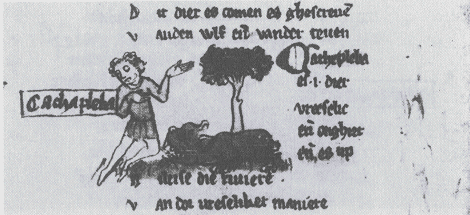 D it dier es comen es ghescreuē
V anden wlf eñ vander teuen
Cachapleba
Cachepleba
es .i. dier
vreselic
eñ onghier
eñ, es up
arise die riuiere
V an der vreseliker maniere